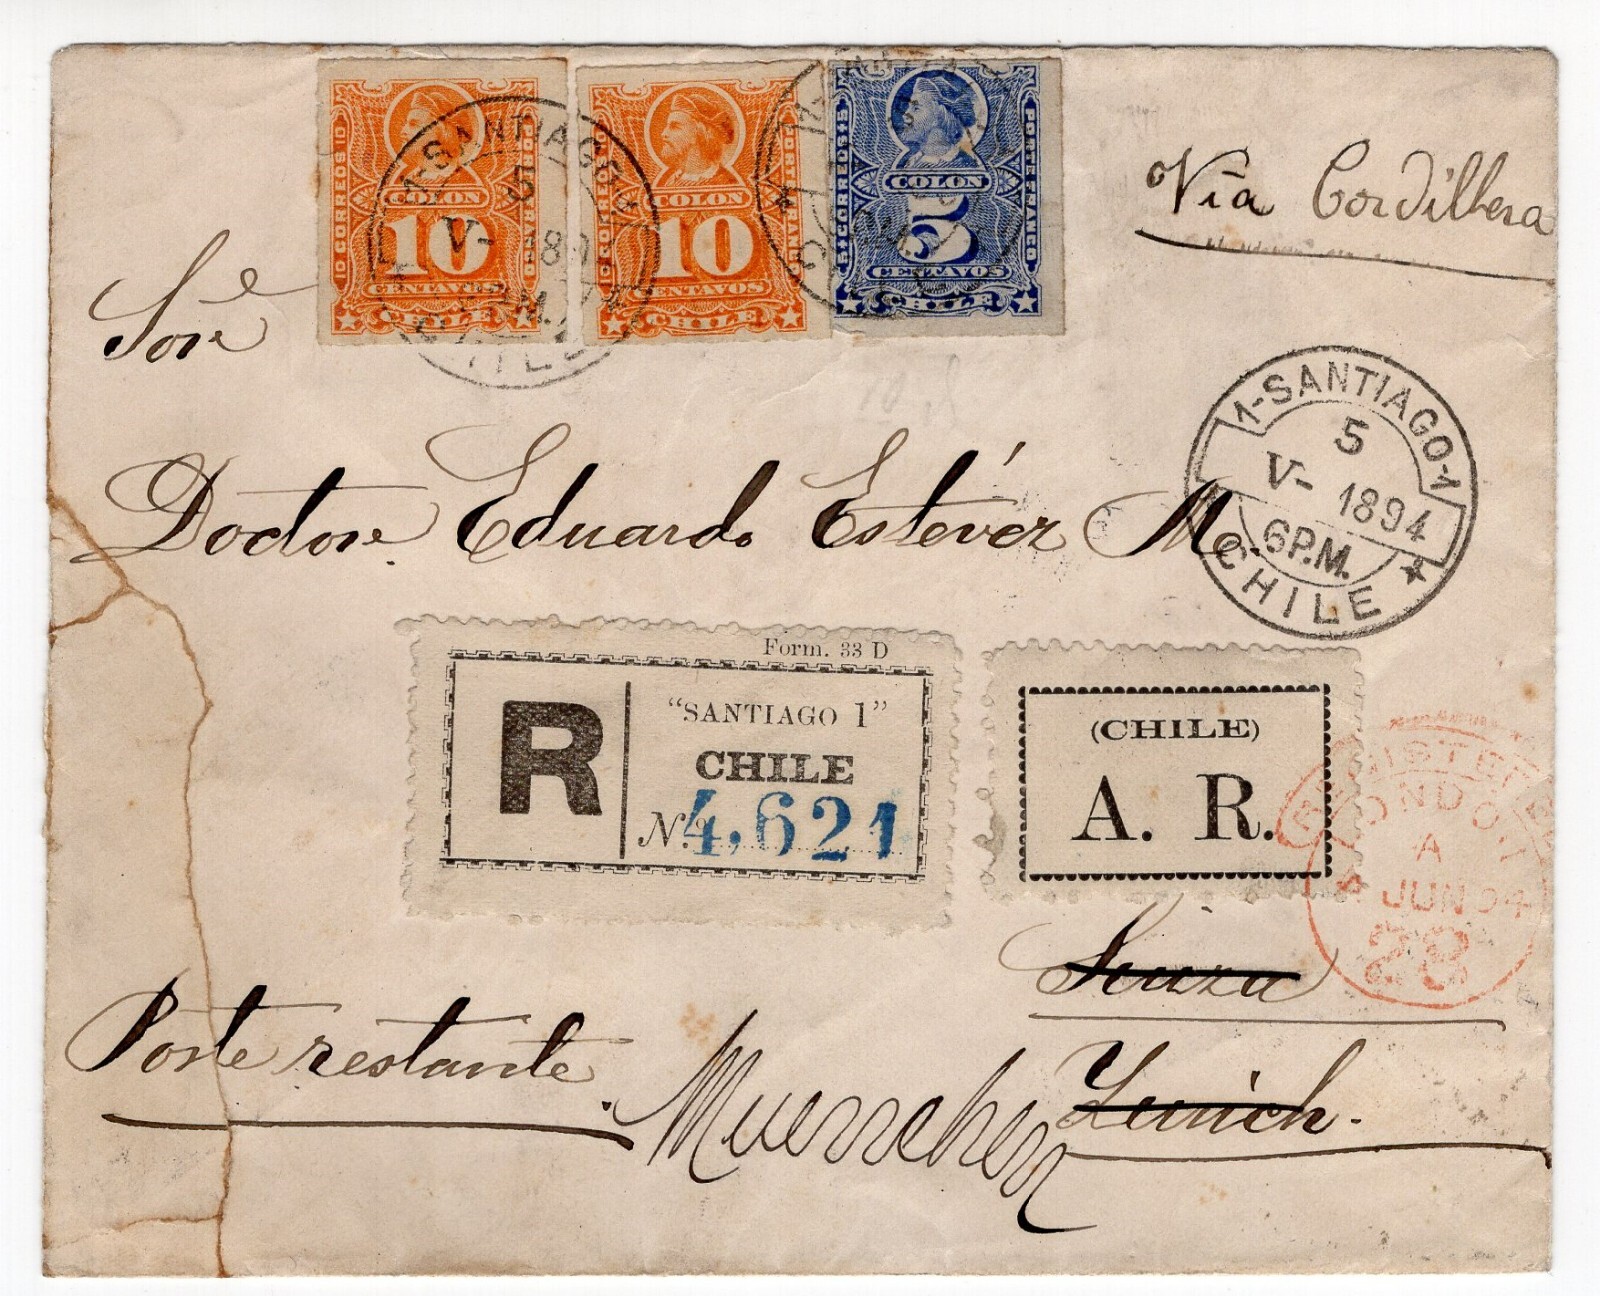 10 CORREOS 10
PORTE FRANCO
COLON
10
CENTAVOS
CHILE
COLON
10
CENTAVOS
CHILE
PORTE FRANCO
5 CORREOS 5
PORTE FRANCO
COLON
5
CENTAVOS
CHILE
1-SANTIAGO-1
5
V-
CHILE
Vía Cordillera
Sor
Doctor Eduardo Estévez Mc.
1-SANTIAGO-1
5
V- 1894
6 P.M.
CHILE
Form. 33 D
R
"SANTIAGO 1"
CHILE
No. 4,621
(CHILE)
A. R.
REGISTERED
LONDON
A
JUN 94
28
Suiza
Poste restante.
Zurich.
Muenchen